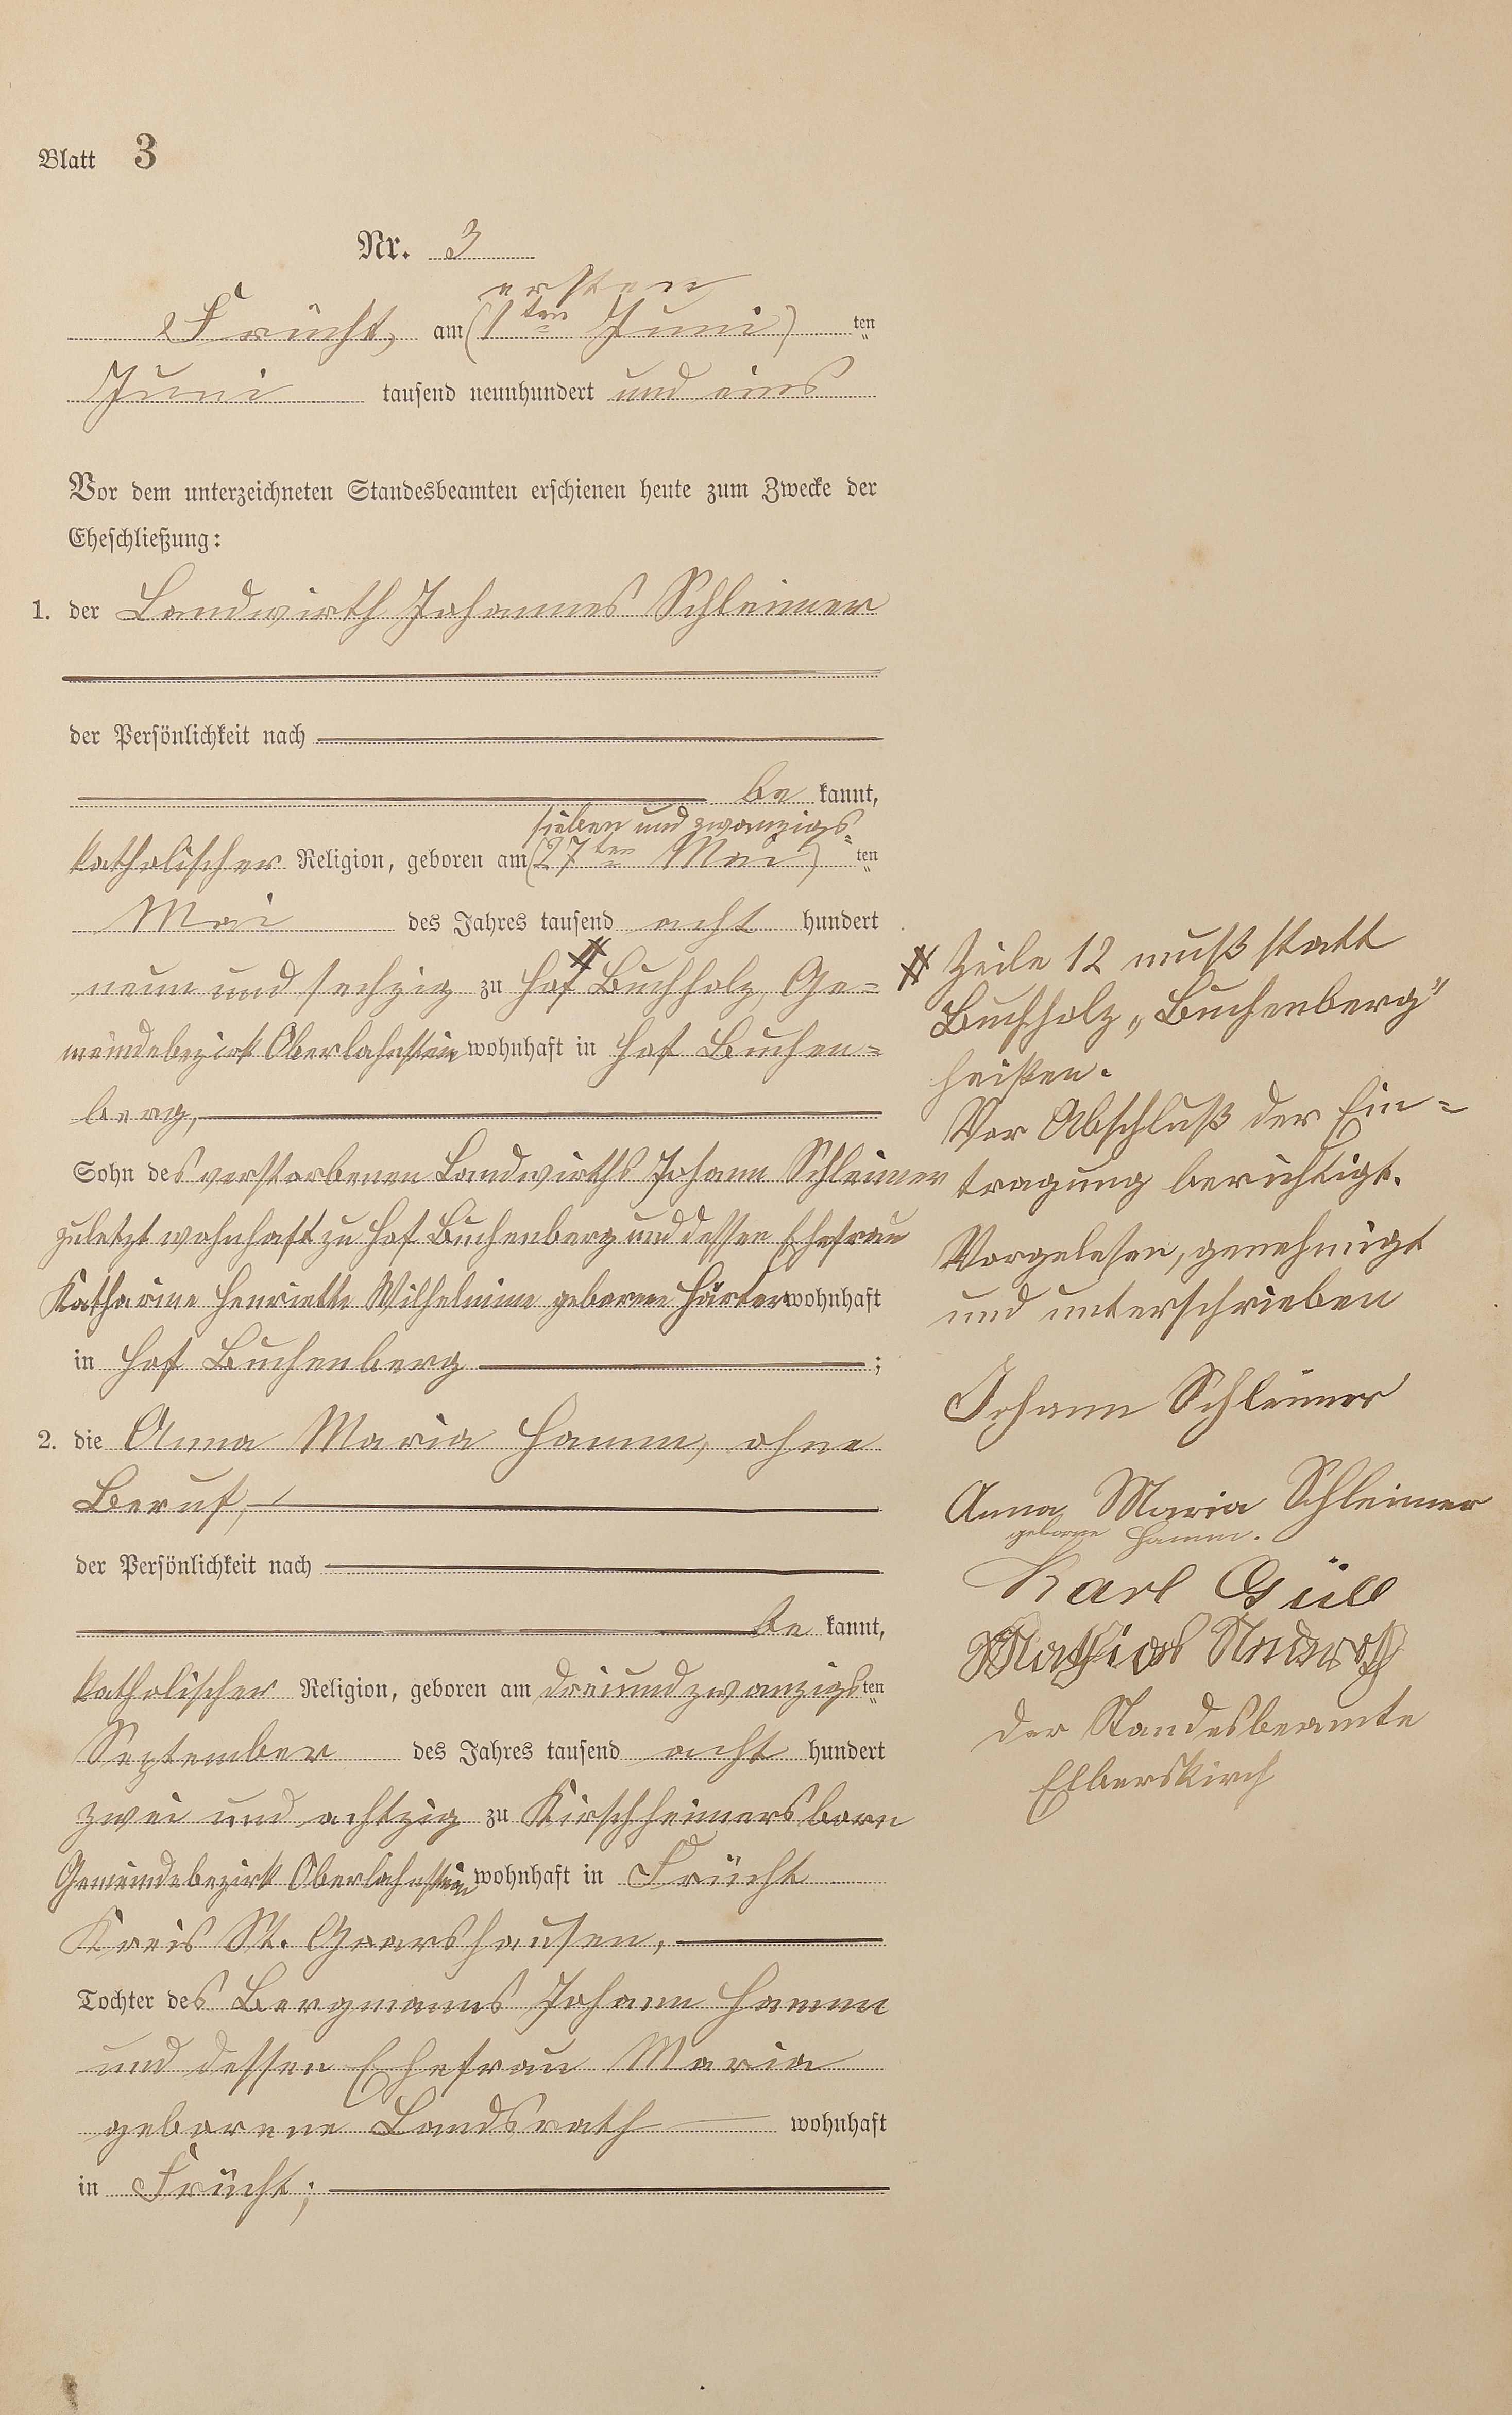 Blatt 3
Nr. 3
ersten
Frücht, am (1ten Juni) ten
Juni tausend neunhundert und eins
Vor dem unterzeichneten Standesbeamten erschienen heute zum Zwecke der
Eheschließung:
1. der Landwirth Johannes Schleimer
der Persönlichkeit nach
be kannt,
sieben und zwanzigs-
katholischer Religion, geboren am (27ten Mai) ten
Mai des Jahres tausend acht hundert
neun und sechzig zu Hof Buchholz, Ge-
meindebezirk Oberlahnstein wohnhaft in Hof Buchen-
berg,
Sohn des verstorbenen Landwirths Johann Schleimer
zuletzt wohnhaft zu Hof Buchenberg und dessen Ehefrau
Katharine Henriette Wilhelmine geborene Härter wohnhaft
in Hof Buchenberg ;
2. die Anna Maria Hamm, ohne
Beruf,
der Persönlichkeit nach
be kannt,
katholischer Religion, geboren am dreiundzwanzigsten
September des Jahres tausend acht hundert
zwei und achtzig zu Kirschheimersborn
Gemeindebezirk Oberlahnstein wohnhaft in Frücht
Kreis St. Goarshausen,
Tochter des Bergmanns Johann Hamm
und dessen Ehefrau Maria
geborene Landsrath wohnhaft
in Frücht;
# Zeile 12 muß statt
Buchholz „Buchenberg"
heißen.
Vor Abschluß der Ein-
tragung berichtigt.
Vorgelesen, genehmigt
und unterschrieben
Johann Schleimer
Anna Maria Schleimer
geborne Hamm.
Karl Güll
Mathias
Der Standesbeamte
Elberskirch